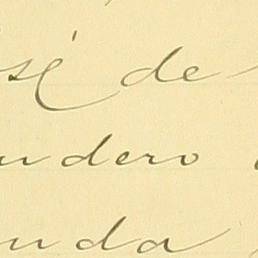 sé de
ndero
unda